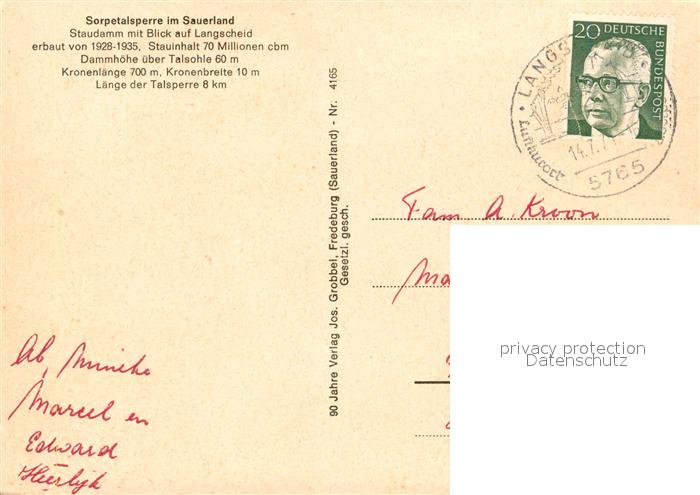 Sorpetalsperre im Sauerland
Staudamm mit Blick auf Langscheid
erbaut von 1928-1935, Stauinhalt 70 Millionen cbm
Dammhöhe über Talsohle 60 m
Kronenlänge 700 m, Kronenbreite 10 m
Länge der Talsperre 8 km
90 Jahre Verlag Jos. Grobbel, Fredeburg (Sauerland) - Nr. 4165
Gesetzl. gesch.
20 DEUTSCHE BUNDESPOST
LANGS
Luftkurort
14.7.7
5765
Fam A. Kroon
Ma
privacy protection
Datenschutz
Mineke
Marcel en
Edward
Heerlijk